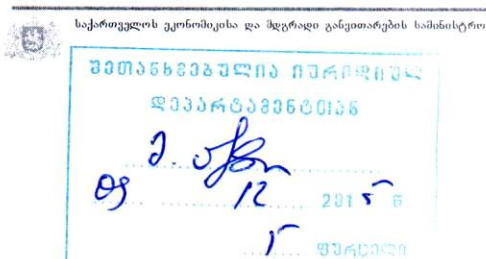 საქართველოს ეკონომიკისა და მდგრადი განვითარების სამინისტრო
შეთანხმებულია იურიდიულ
დეპარტამენტთან
09 12 2015 წ
1 ფურცელი